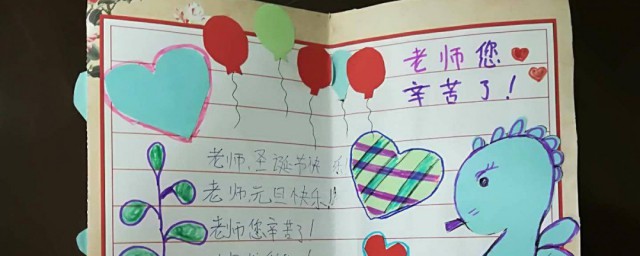 老师您
辛苦了！
老师,圣诞节快乐！
老师,元旦快乐！
老师您辛苦了！